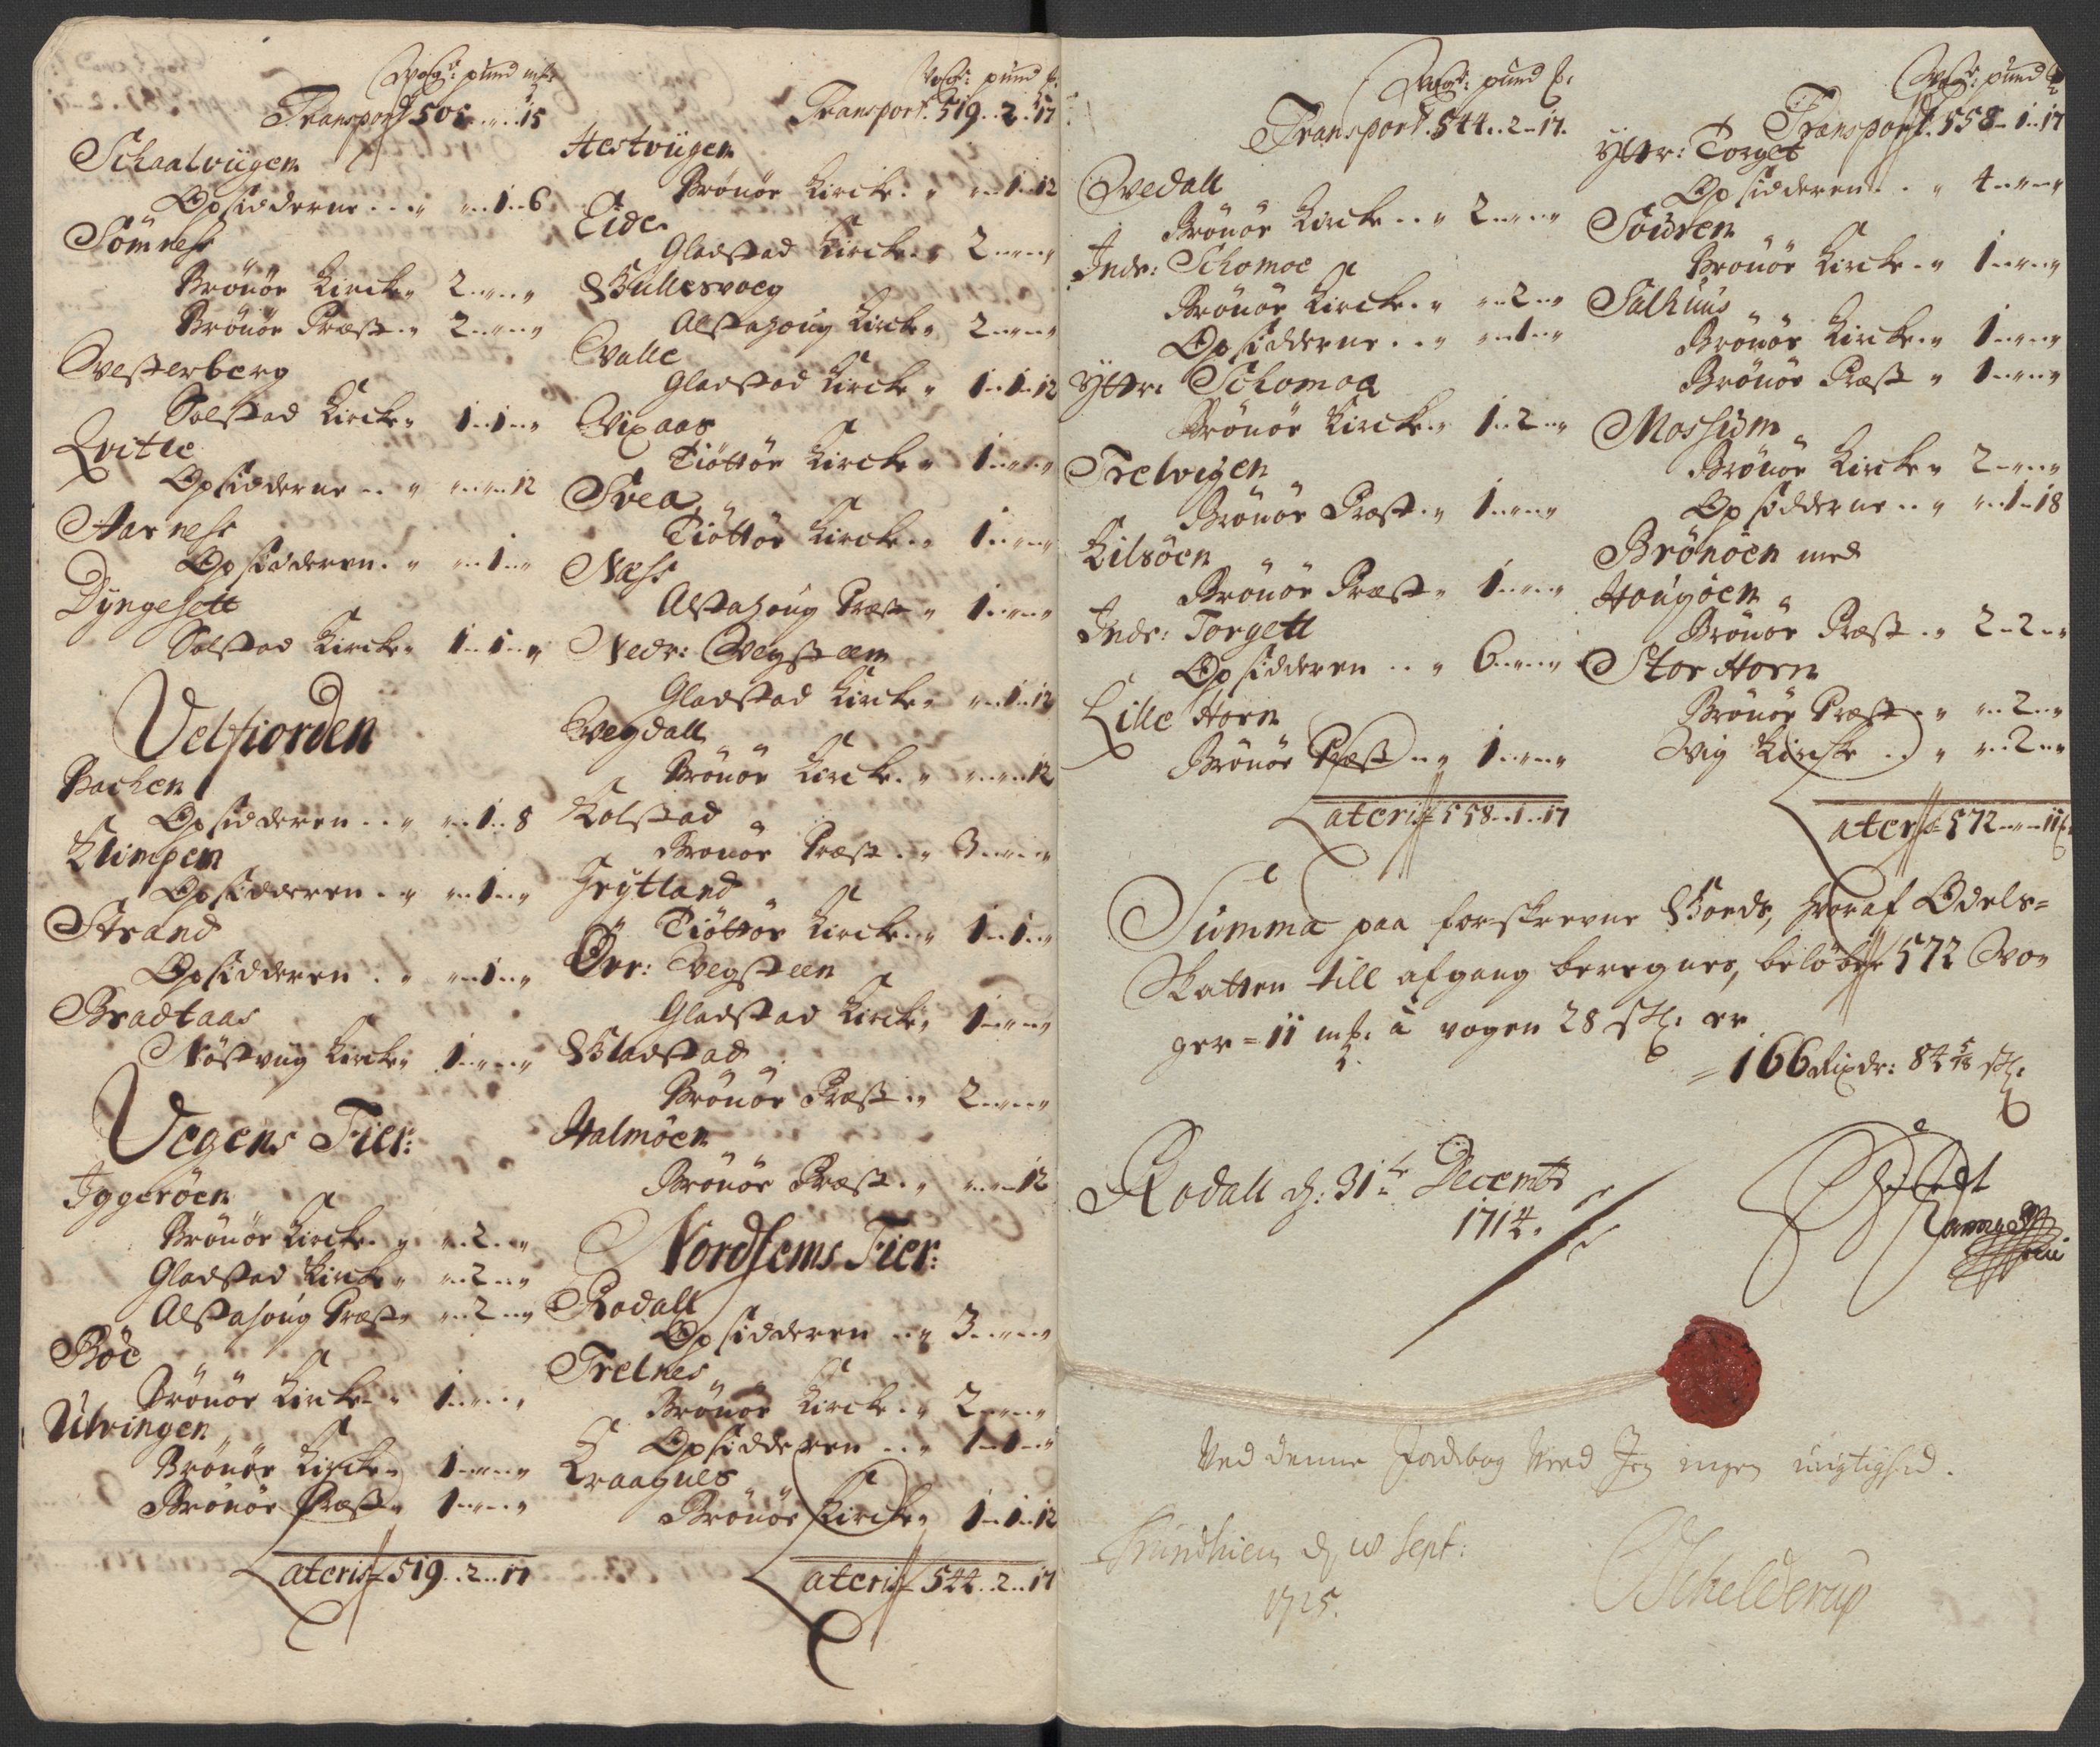 Wog: pund mk:
Transport 505 „ 15
Schaalviigen
Opsidderne . . „ „ 1 6
Sömness
Brönöe Kircke „ 2 „ „
Brönöe Præst „ 2 „ „
Westerberg
Solstad Kircke „ 1 1 „
Qvitle
Opsidderne . . „ „ „ 12
Aarness
Opsidderen . „ „ 1 „
Dyngesett
Solstad Kircke „ 1 1 „
Velfiorden
Bachen
Opsidderen . . „ „ 1 8
Klimpen
Opsidderen . . „ „ 1 „
Strand
Opsidderen . „ „ 1 „
Bradtaas
Nöstviig Kircke „ 1 „ „
Vegens Fier:
Iggeröen
Brönöe Kircke . „ „ 2 „
Gladstad Kircke „ „ 2 „
Alstahoug Præst „ „ 2 „
Böe
Brönöe Kircke „ 1 „ „
Ulvingen
Brönöe Kircke „ 1 „ „
Brönöe Præst „ 1 „ „
Lateris 519 . . 2 . . 17
Wog: pund mk:
Transport. 519 . . 2 . 17
Hestviigen
Brönöe Kircke . „ „ 1 12
Eide
Gladstad Kircke „ 2 „ „
Gullesvaeg
Alstahoug Kircke „ 2 „ „
Walle
Gladstad Kircke „ 1 1 12
Vixaas
Tiöttöe Kircke „ 1 „ „
Svea
Tiöttöe Kircke . „ 1 „ „
Næss
Alstahoug Præst „ 1 „ „
Nedr: Vegsteen
Gladstad Kircke „ „ 1 12
Wegdall
Brönöe Kircke . „ „ „ 12
Kolstad
Brönöe Præst . „ 3 „ „
Grytland
Tiöttöe Kircke . „ 1 1 „
Övr: Vegsteen
Gladstad Kircke „ 1 „ „
Gladstad
Brönöe Præst . „ 2 „ „
Halmöen
Brönöe Præst . „ „ „ 12
Nordhems Fier:
Rodall
Opsidderen . . „ 3 „ „
Trelnes
Brönöe Kircke . „ 2 „ „
Opsidderen . . „ 1 1 „
Kraagnes
Brönöe Kircke „ 1 1 12
Lateris 544 . . 2 . . 17
Wog: pund mk:
Transport. 544 . . 2 17.
Qvedall
Brönöe Kircke . . „ 2 „ „
Indr: Schomoe
Brönöe Kircke . „ „ 2 „
Opsidderne . . „ „ 1 „
Yttr: Schomoe
Brönöe Kircke . „ 1 2 „
Trelvigen
Brönöe Præst . „ 1 „ „
Kilsöen
Brönöe Præst „ 1 „ „
Indr: Torgett
Opsidderen . . „ 6 „ „
Lille Horn
Brönöe Præst . . „ 1 „ „
Lateris 558 . . 1 . . 17
Wog: pund
Transport. 558 1 17
Yttr: Torget
Opsidderen . . „ 4 „ „
Souren
Brönöe Kircke . „ 1 „ „
Salhuus
Brönöe Kircke . „ 1 „ „
Brönöe Præst „ 1 „ „
Mossum
Brönöe Kircke „ 2 „ „
Opsidderne . . „ „ 1 18
Brönöen med
Hougöen
Brönöe Præst . „ 2 2 „
Stor Horn
Brönöe Præst . „ „ 2 „
Vig Kircke . . „ „ 2 „
Lateris 572 „ 11
Summa paa forskrevne Goeds, hvoraf Odels=
Skatten till afgang beregnes, beløber 572 Wo=
ger = 11 mk: à vogen 28 sk: er
= 166 Rixdr: 84 5/18 sk:
Rodall d: 31te Decembr
1714.
Ved denne Jordebog Veed Jeg ingen urigtighed.
Trundhiem d, 10 Sept:
1715.
Schelderup